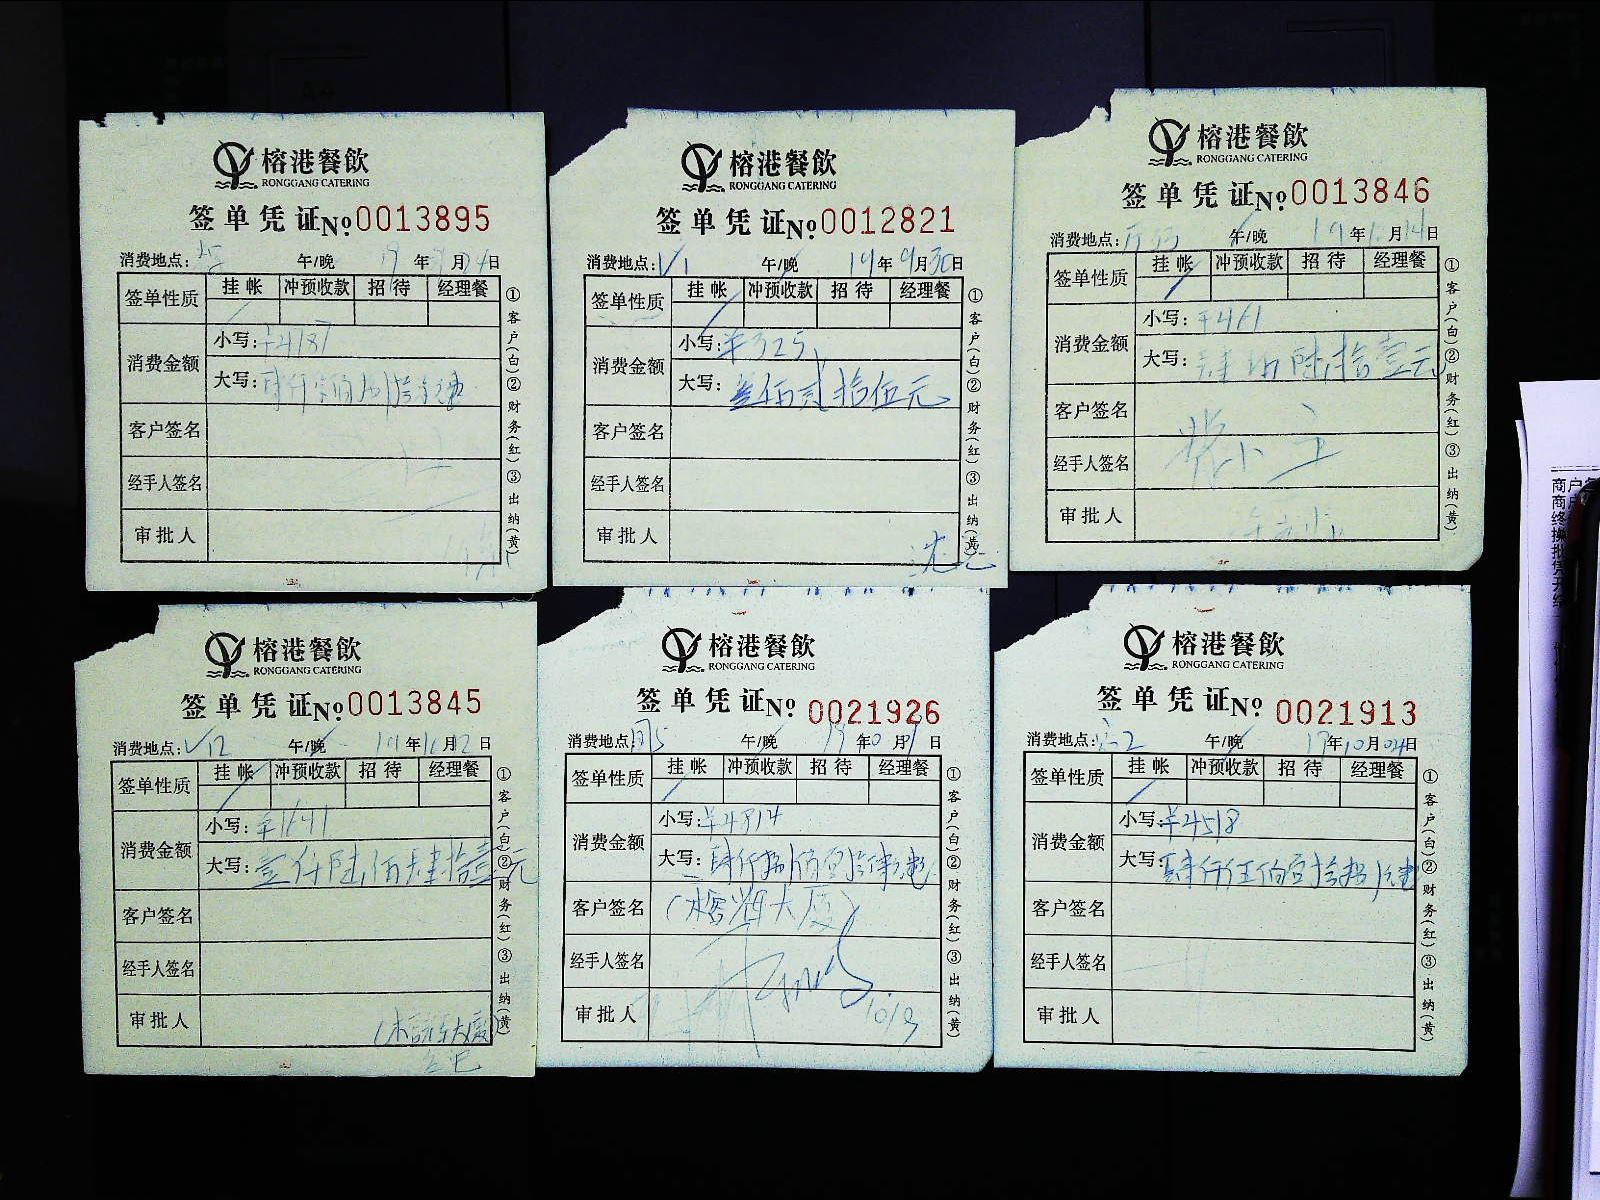 榕港餐飲
RONGGANG CATERING
签单凭证 No. 0013895
消费地点: 午/晚 19年 月 日
签单性质 挂帐 冲预收款 招待 经理餐
消费金额 小写: 4187
大写:
客户签名
经手人签名
审批人
①客户(白)②财务(红)③出纳(黄)
榕港餐飲
RONGGANG CATERING
签单凭证 No. 0012821
消费地点: 午/晚 19年9月30日
签单性质 挂帐 冲预收款 招待 经理餐
消费金额 小写: 325
大写: 佰贰拾伍元
客户签名
经手人签名
审批人
①客户(白)②财务(红)③出纳(黄)
榕港餐飲
RONGGANG CATERING
签单凭证 No. 0013846
消费地点: 午/晚 19年 月14日
签单性质 挂帐 冲预收款 招待 经理餐
消费金额 小写: 461
大写: 肆佰陆拾壹元
客户签名
经手人签名
审批人
①客户(白)②财务(红)③出纳(黄)
榕港餐飲
RONGGANG CATERING
签单凭证 No. 0013845
消费地点: V12 午/晚 19年 月 日
签单性质 挂帐 冲预收款 招待 经理餐
消费金额 小写: ¥1641
大写: 壹仟陆佰肆拾壹元
客户签名
经手人签名
审批人
①客户(白)②财务(红)③出纳(黄)
榕港餐飲
RONGGANG CATERING
签单凭证 No. 0021926
消费地点: 午/晚 19年10月 日
签单性质 挂帐 冲预收款 招待 经理餐
消费金额 小写: ¥4814
大写: 肆仟捌佰壹拾肆元
客户签名 大厦)
经手人签名
审批人
①客户(白)②财务(红)③出纳(黄)
榕港餐飲
RONGGANG CATERING
签单凭证 No. 0021913
消费地点: 午/晚 19年10月04日
签单性质 挂帐 冲预收款 招待 经理餐
消费金额 小写: ¥4518
大写: 肆仟伍佰壹拾捌元
客户签名
经手人签名
审批人
①客户(白)②财务(红)③出纳(黄)